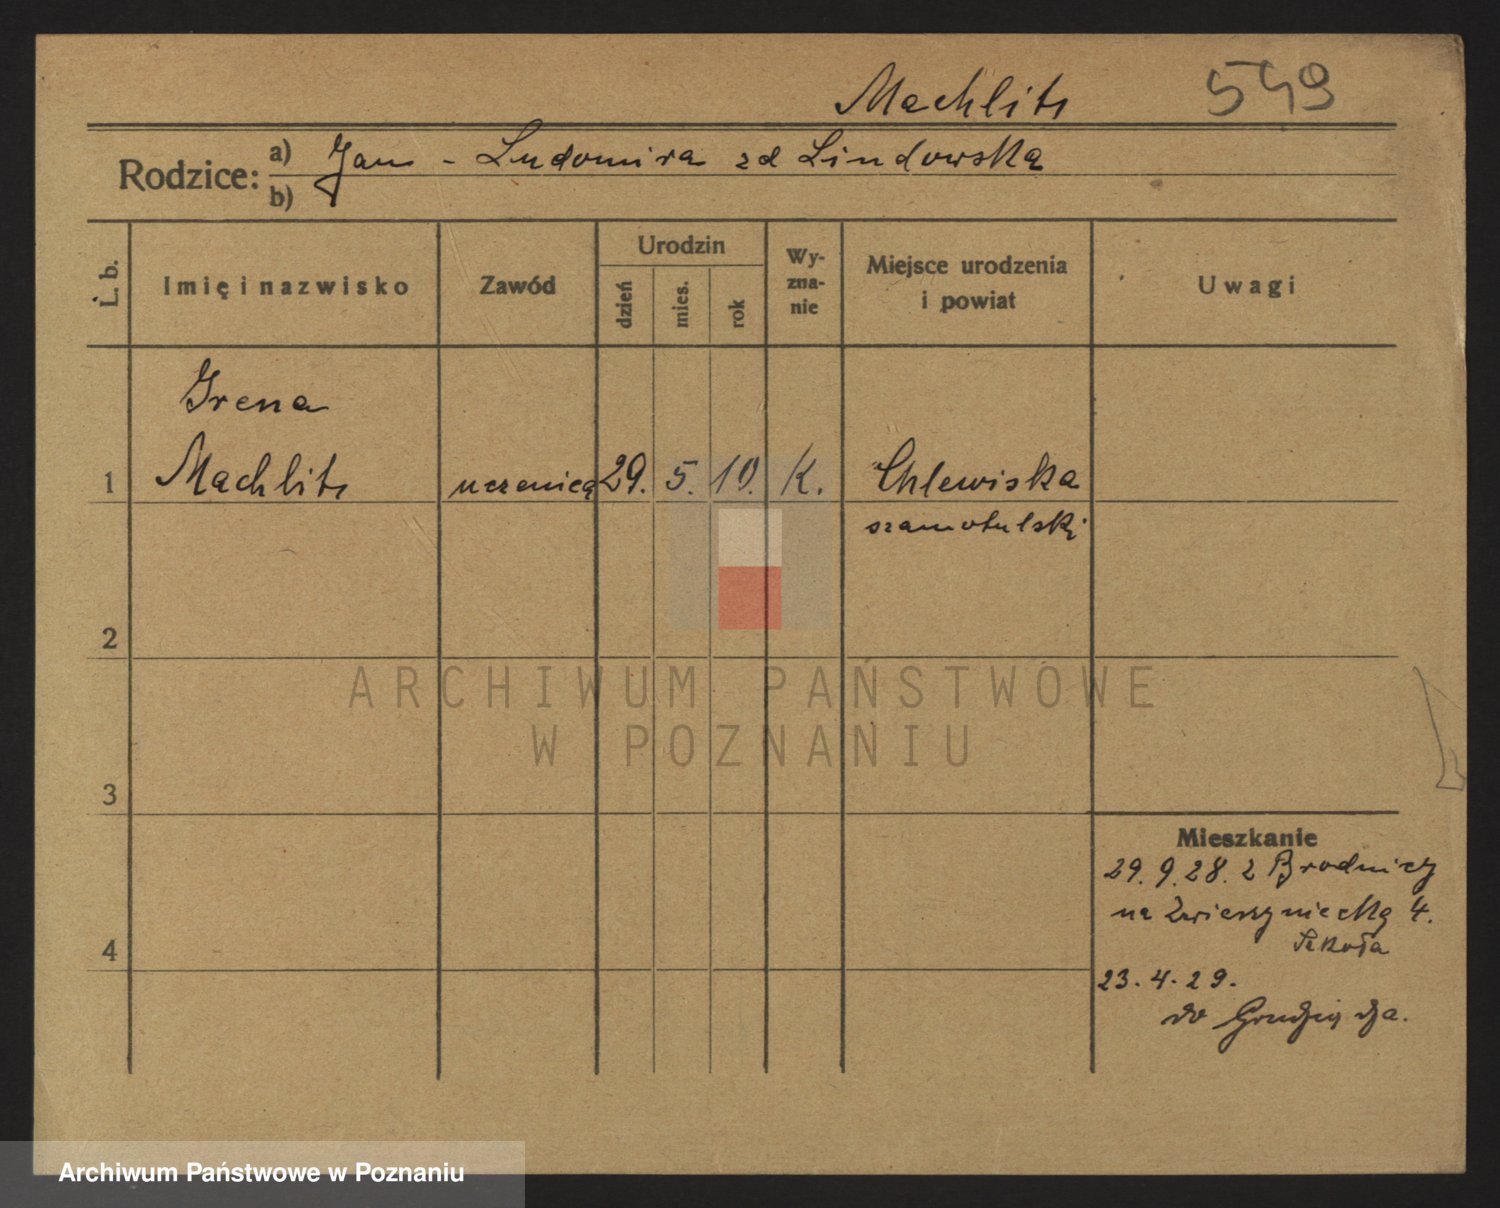 Machlitt 549
Rodzice: a) Jan - Ludomira zd Lindowska
b)
L. b.
Imię i nazwisko
Zawód
Urodzin
dzień
mies.
rok
Wy-
zna-
nie
Miejsce urodzenia
i powiat
Uwagi
Irena
1 Machlitt uczenica 29. 5. 10. K. Chlewiska
szamotulski
2
3
4
Mieszkanie
29. 9. 28. z Brodnicy
na Zwierzyniecką 4.
Szkoła
23. 4. 29.
do Grudziądza.
ARCHIWUM PAŃSTWOWE
W POZNANIU
Archiwum Państwowe w Poznaniu